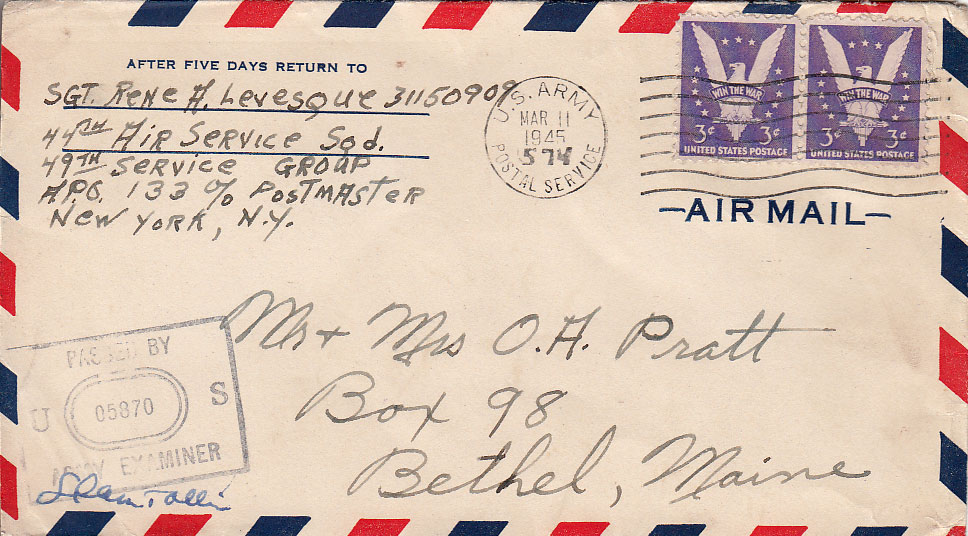 AFTER FIVE DAYS RETURN TO
SGT. Rene A. Levesque 31150909
44TH Air Service Sqd.
49TH Service GROUP
A.P.O. 133 c/o PostMASTER
New York, N.Y.
U.S. ARMY
MAR 11
1945
574
POSTAL SERVICE
WIN THE WAR
3¢ 3¢
UNITED STATES POSTAGE
WIN THE WAR
3¢ 3¢
UNITED STATES POSTAGE
AIR MAIL
Mr + Mrs O.A. Pratt
Box 98
Bethel, Maine
PASSED BY
U 05870 S
ARMY EXAMINER